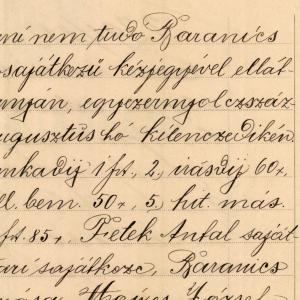 ni nem tudo Baranics
sajátkezű kézjegyével ellát-
nyán, egyezernyolczszáz-
augusztus hó kilenczedikén
unkadíj 1 frt, 2, irásdíj 60 r,
ll. bem. 50 r, 5, hit. más.
frt. 85 r, Fetek Antal saját-
ari sajátkeze, Baranics
József